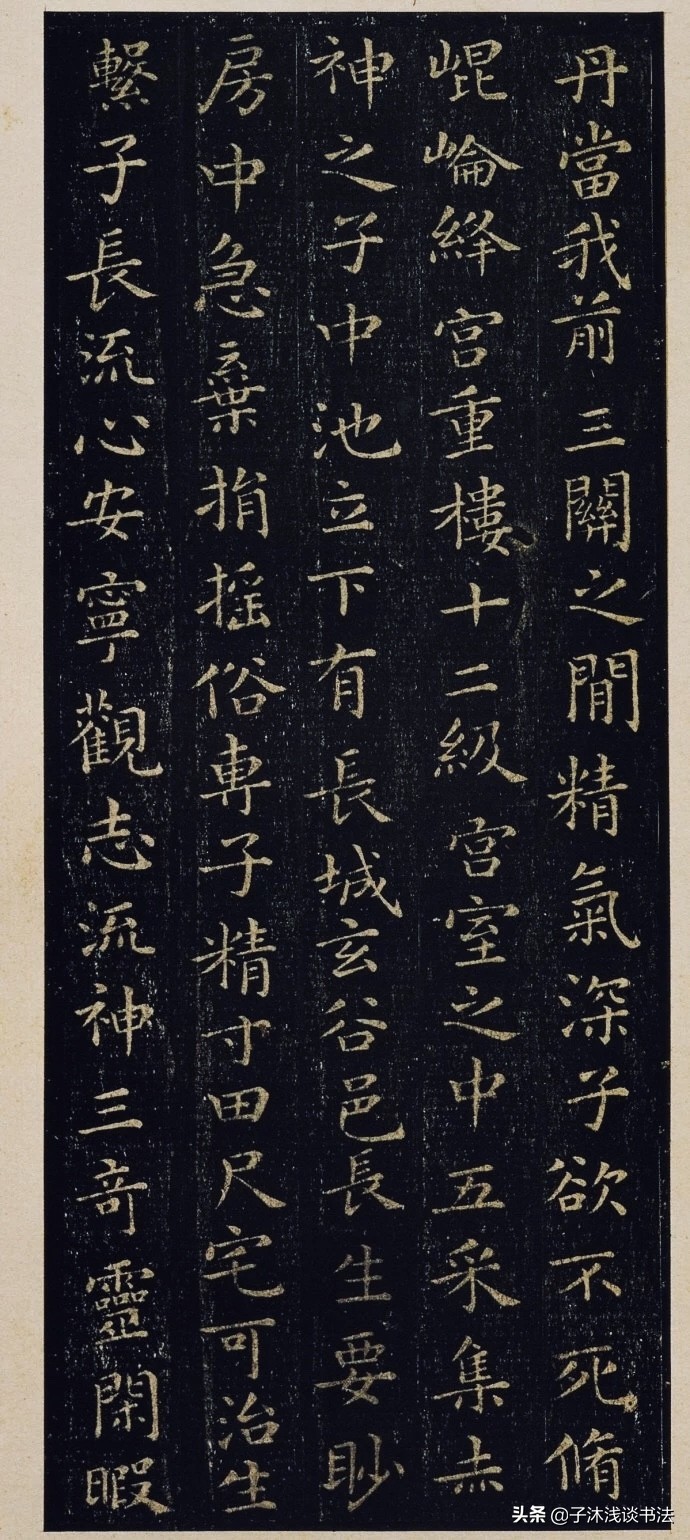 丹當我前三關之間精氣深子欲不死脩
崐崘絳宫重樓十二級宫室之中五采集赤
神之子中池立下有長城玄谷邑長生要眇
房中急棄捐揺俗専子精寸田尺宅可治生
繫子長流心安寧觀志流神三奇靈閑暇
头条 @子沐浅谈书法